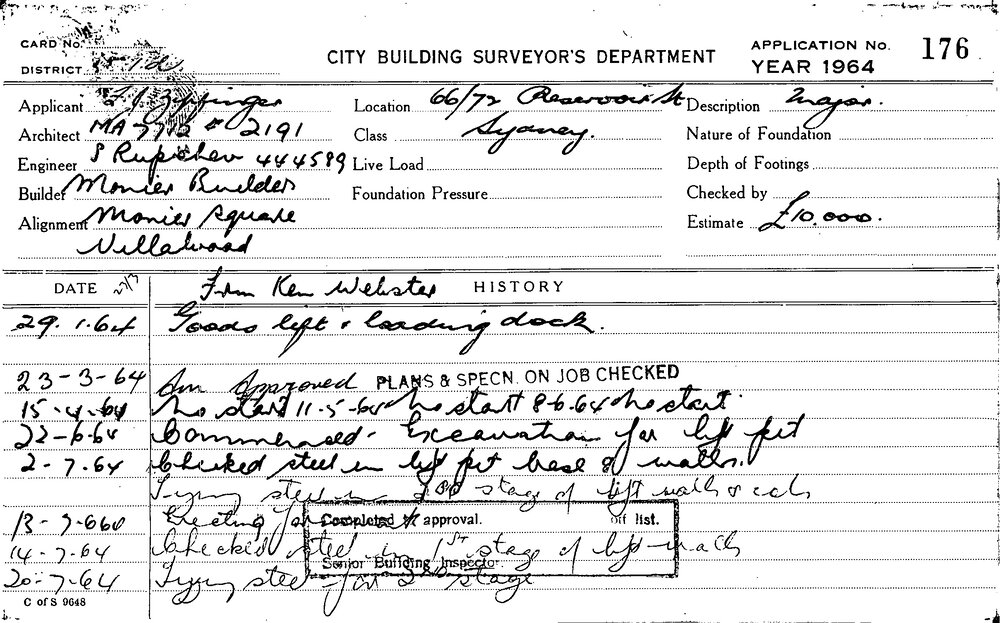 CARD No.
CITY BUILDING SURVEYOR'S DEPARTMENT
APPLICATION No. 176
DISTRICT
YEAR 1964
Applicant
Location 66/72 Reservoir St
Description Major.
Architect MA 7712 2191
Class Sydney.
Nature of Foundation
Engineer S 444589
Live Load
Depth of Footings
Builder Monier Builders
Foundation Pressure
Checked by
Alignment Monier Square
Estimate £10.000.
Villawood
DATE
From Ken Webster HISTORY
29.1.64 Goods lift & loading dock.
23-3-64 Approved PLANS & SPECN. ON JOB CHECKED
15-4-64 No start 11-5-64 No start 8-6-64 No start
22-6-64 Commenced - Excavation for lift pit
2-7-64 Checked steel in lift pit base & walls.
Tying steel in 2nd stage of lift walls &
Completed approval. off list.
13-7-660 Erecting for
14-7-64 Checked steel in 1st stage of lift walls
Senior Building Inspector
20-7-64 Tying steel for 2nd stage
C of S 9648